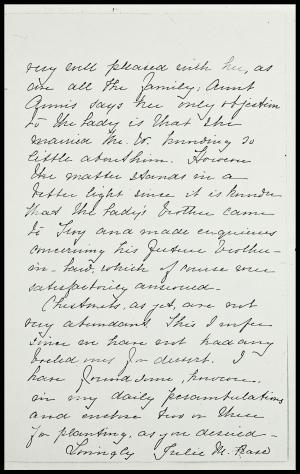 very well pleased with her, as
are all the family; Aunt
Annis says her only objection
to the lady is that she
married Mr. V. knowing so
little about him. However
the matter stands in a
better light since it is known
that the lady's brother came
to Troy and made enquiries
concerning his future brother-
in-law, which of course were
satisfactorily answered.
Chestnuts, as yet, are not
very abundant. This I infer
since we have not had any
boiled ones for dessert. I
have found some, however,
in my daily perambulations
and enclose two or three
for planting, as you desired -
Lovingly Julie M.